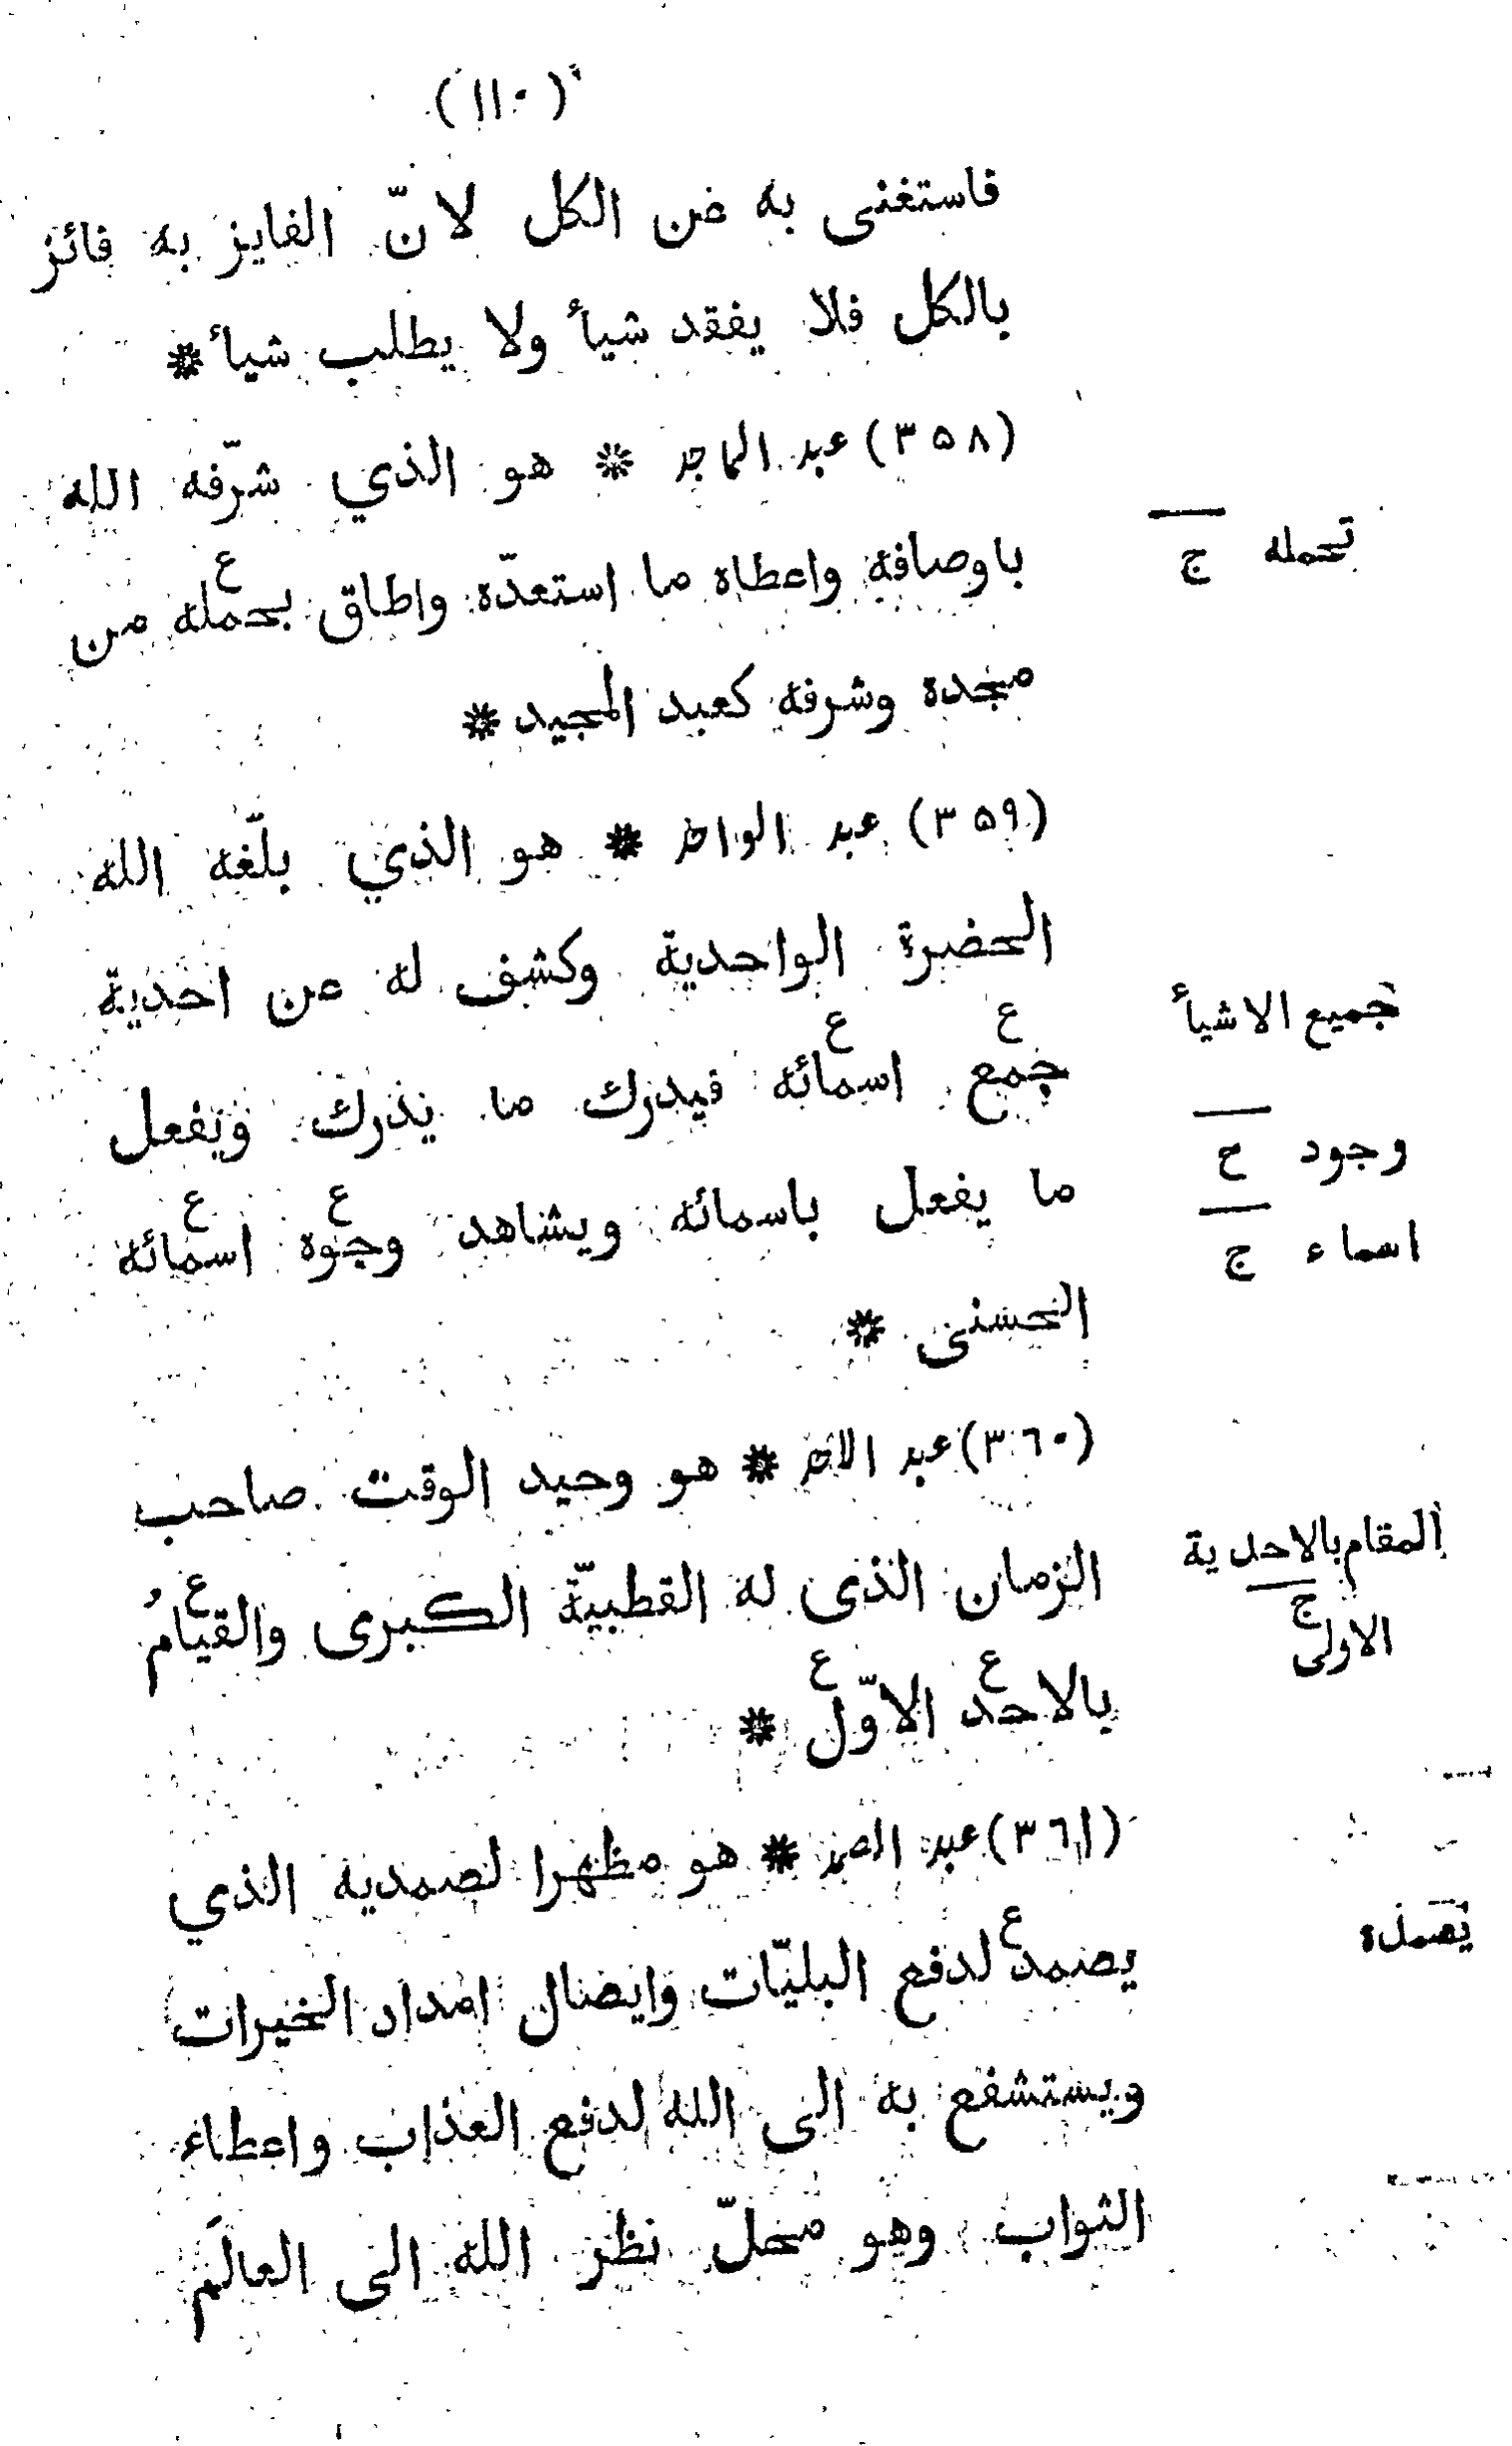 (١١٠)
فاستغنى به عن الكل لانّ الفايز به فائز
بالكل فلا يفقد شيأ ولا يطلب شيأ *
(٣٥٨) عبد الماجد * هو الذي شرّفه الله
باوصافه واعطاه ما استعدّه واطاق بحمله ع من
مجده وشرفه كعبد المجيد *
(٣٥٩) عبد الواحد * هو الذي بلّغه الله
الحضرة الواحدية وكشف له عن احدية
جمع ع اسمائه ع فيدرك ما يدرك ويفعل
ما يفعل باسمائه ويشاهد وجوه ع اسمائه ع
الحسنى *
(٣٦٠) عبد الاحد * هو وحيد الوقت صاحب
الزمان الذى له القطبيّة الكبرى والقيامُ ع
بالاحد ع الاوّل ع *
(٣٦١) عبد الصمد * هو مظهرا لصمدية الذي
يصمد ع لدفع البليّات وايصال امداد الخيرات
ويستشفع به الى الله لدفع العذاب واعطاء
الثواب وهو محلّ نظر الله الى العالَم
تحمله ج
جميع الاشيأ
وجود ح
اسماء ج
المقام بالاحدية ج
الاولى
يصمده